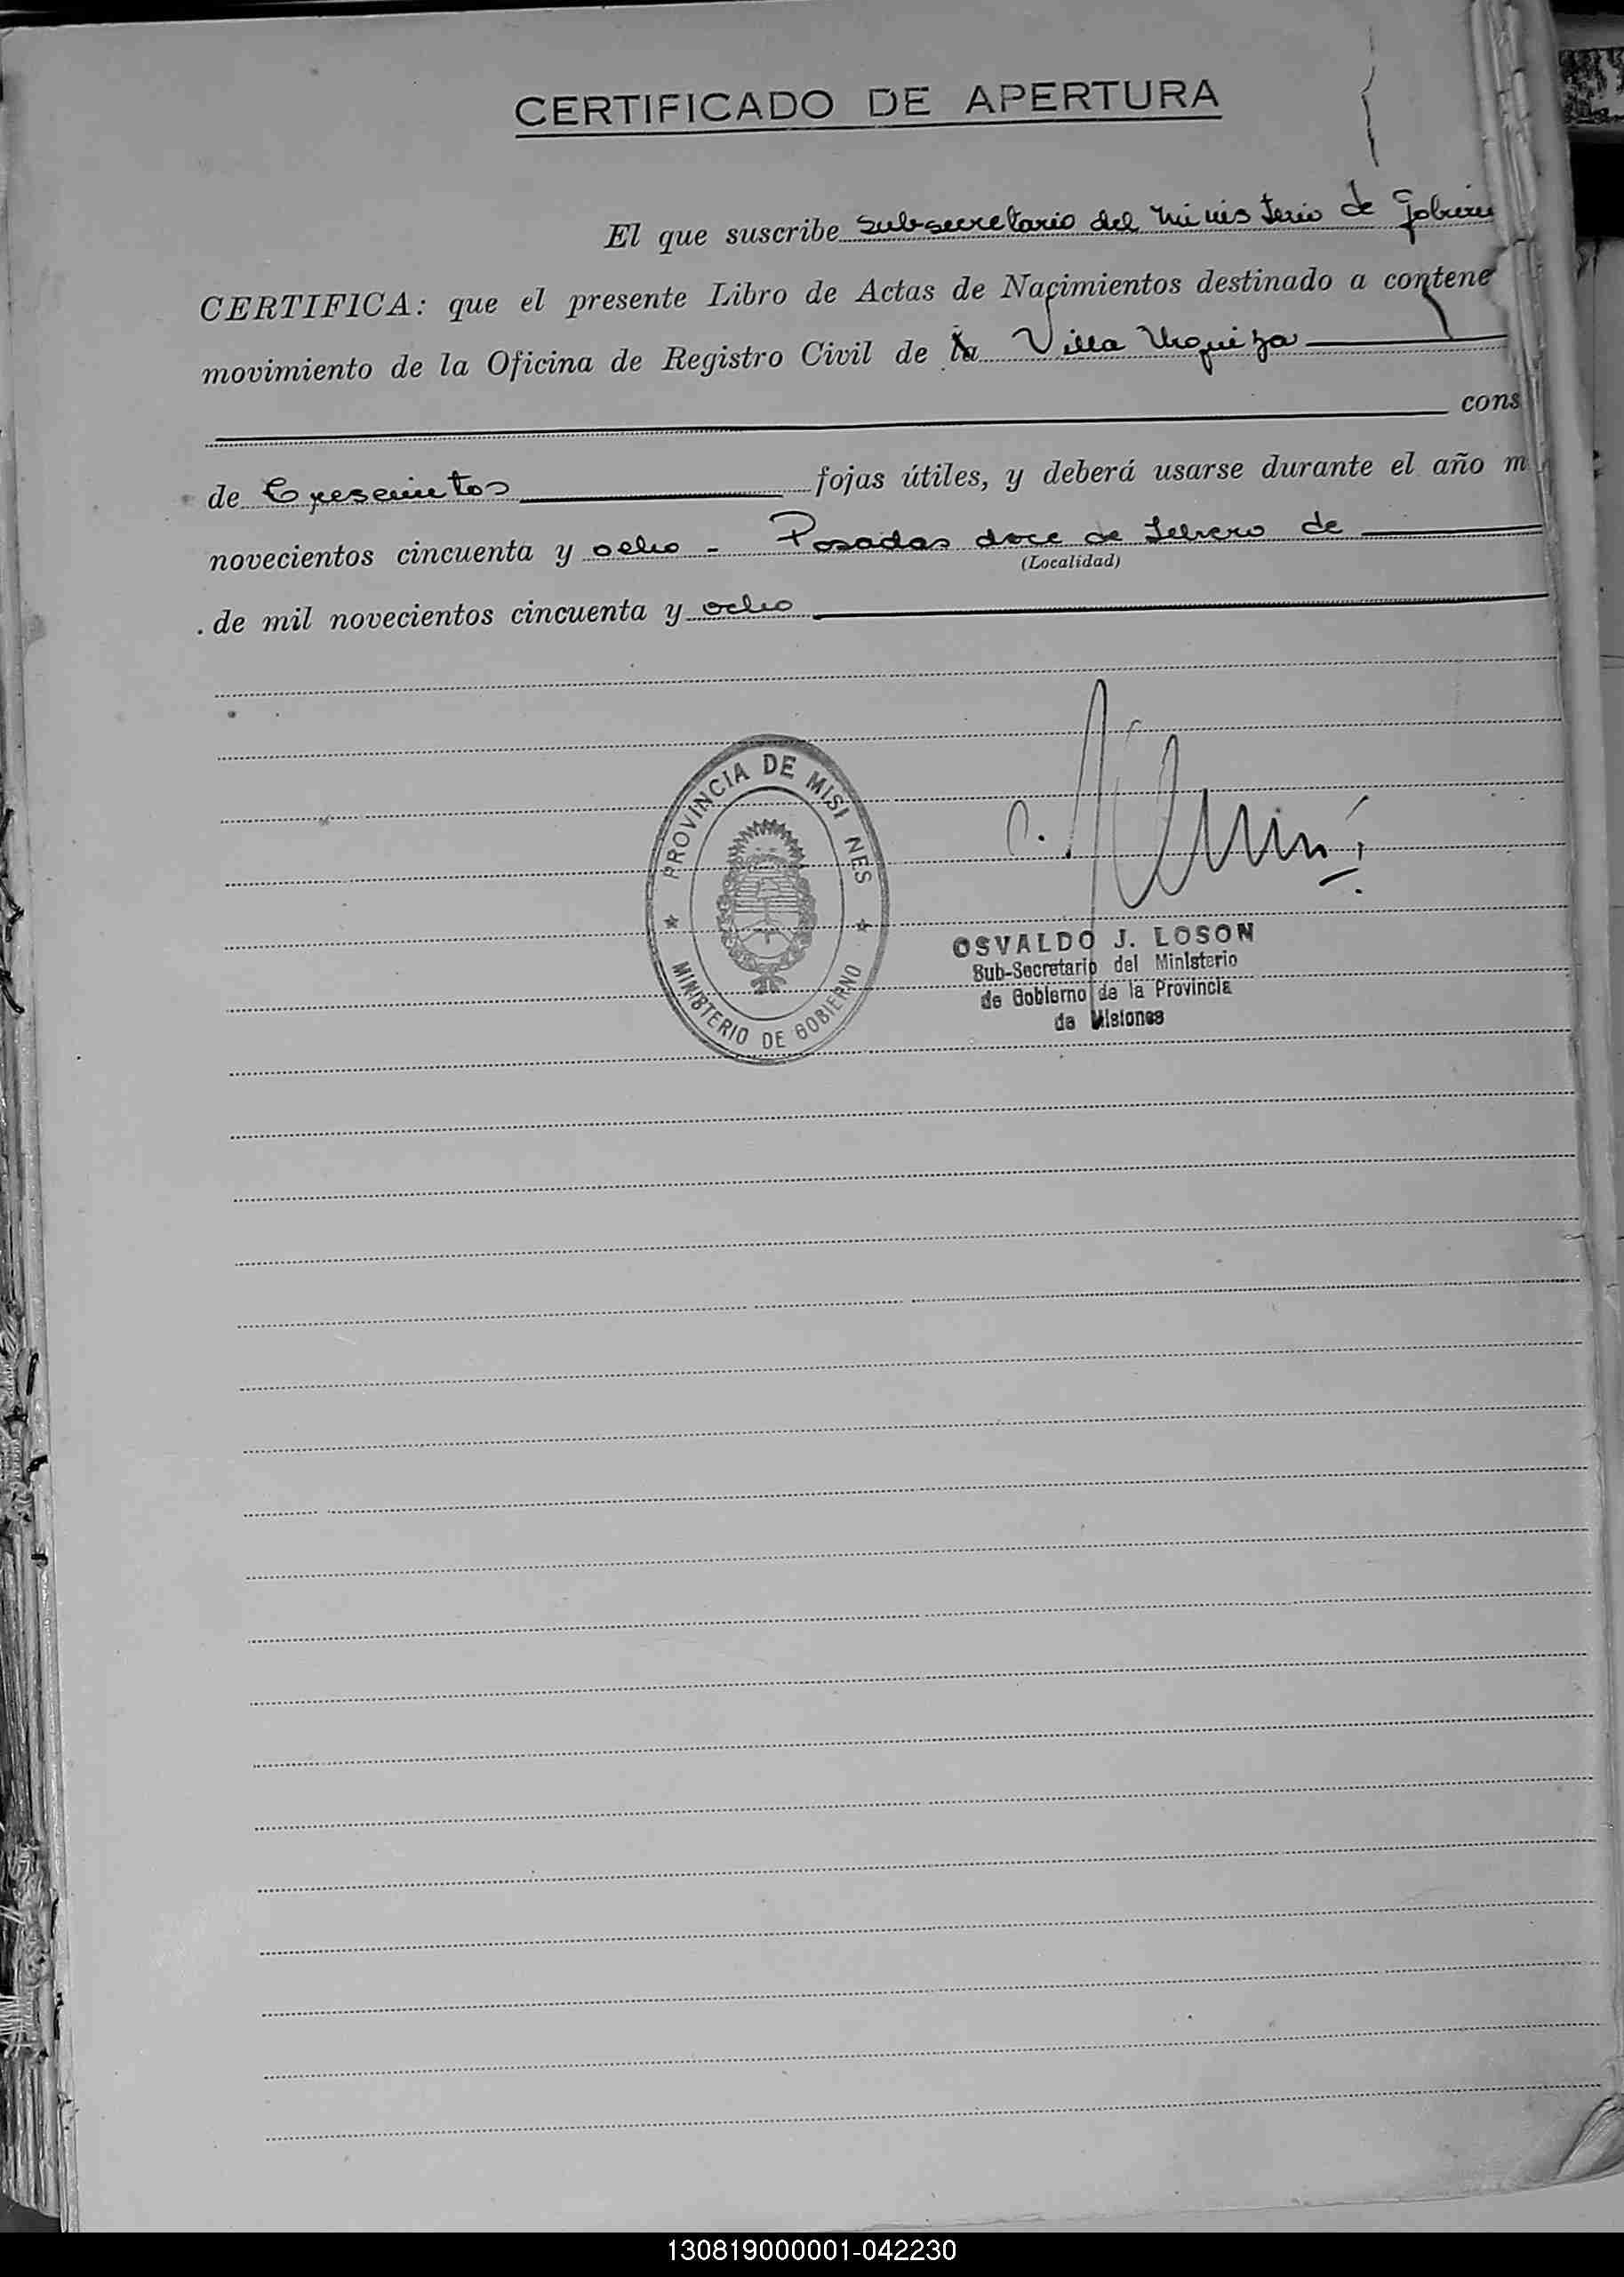 CERTIFICADO DE APERTURA
El que suscribe Subsecretario del Ministerio de
CERTIFICA: que el presente Libro de Actas de Nacimientos destinado a contene
movimiento de la Oficina de Registro Civil de la Villa Urquiza
cons
de Trescientos fojas útiles, y deberá usarse durante el año m
novecientos cincuenta y ocho - Posadas doce de febrero de
(Localidad)
de mil novecientos cincuenta y ocho
PROVINCIA DE MISI NES
MINISTERIO DE GOBIERNO
OSVALDO J. LOSON
Sub-Secretario del Ministerio
de Gobierno de la Provincia
de Misiones
130819000001-042230